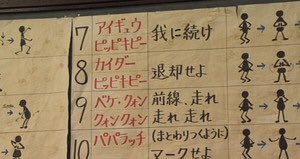 7 アイギュウ
ピッピキピー
我に続け
8 カイダー
ピッピキピー
退却せよ
9 ベケ・クォン
クォンクォン
前線、走れ
走れ 走れ
10 パパラッチ
(まとわりつくように)
マークせよ